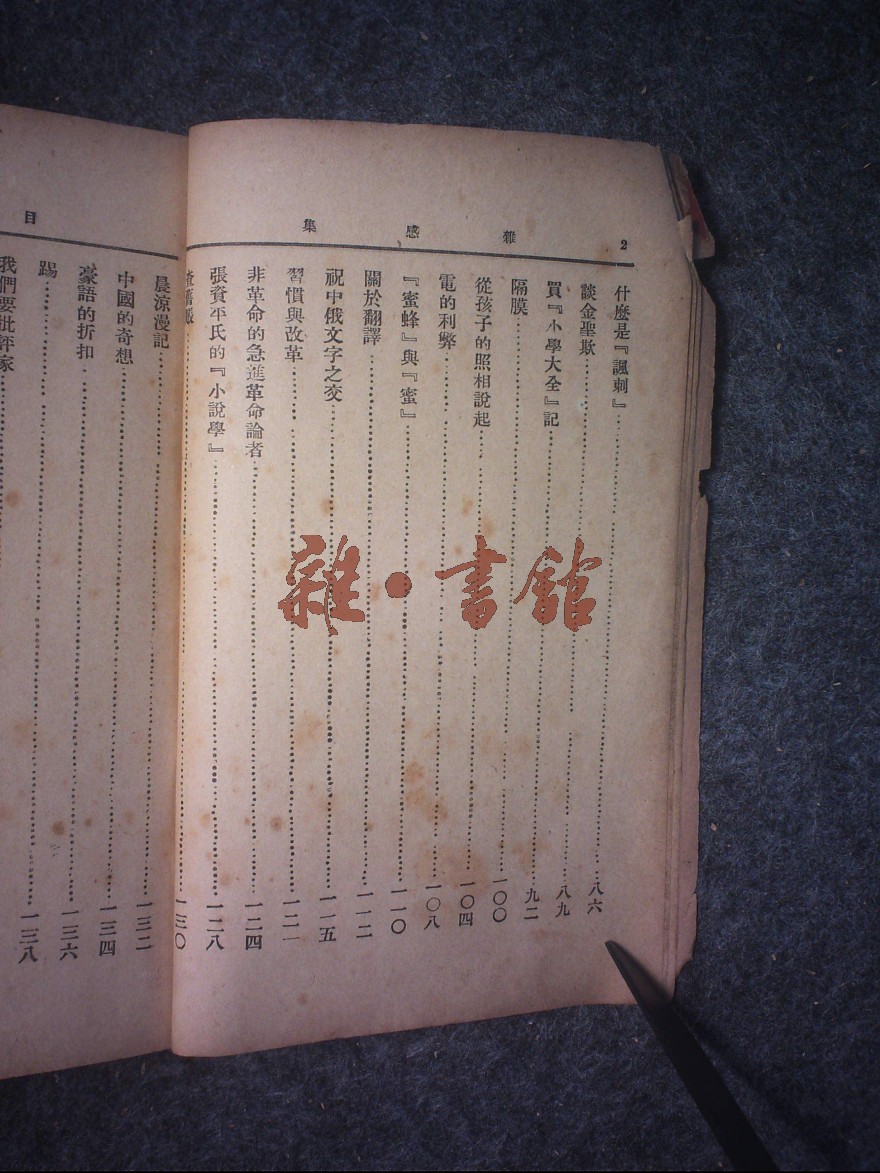 2 雜感集
什麼是『諷刺』……八六
談金聖歎……八九
買『小學大全』記……九二
隔膜……一〇〇
從孩子的照相說起……一〇四
電的利弊……一〇八
『蜜蜂』與『蜜』……一一〇
關於翻譯……一一二
祝中俄文字之交……一一五
習慣與改革……一二一
非革命的急進革命論者……一二四
張資平氏的『小說學』……一二八
……一三〇
目
晨涼漫記……一三二
中國的奇想……一三四
豪語的折扣……一三六
踢……一三八
我們要批評家……
雜·書館